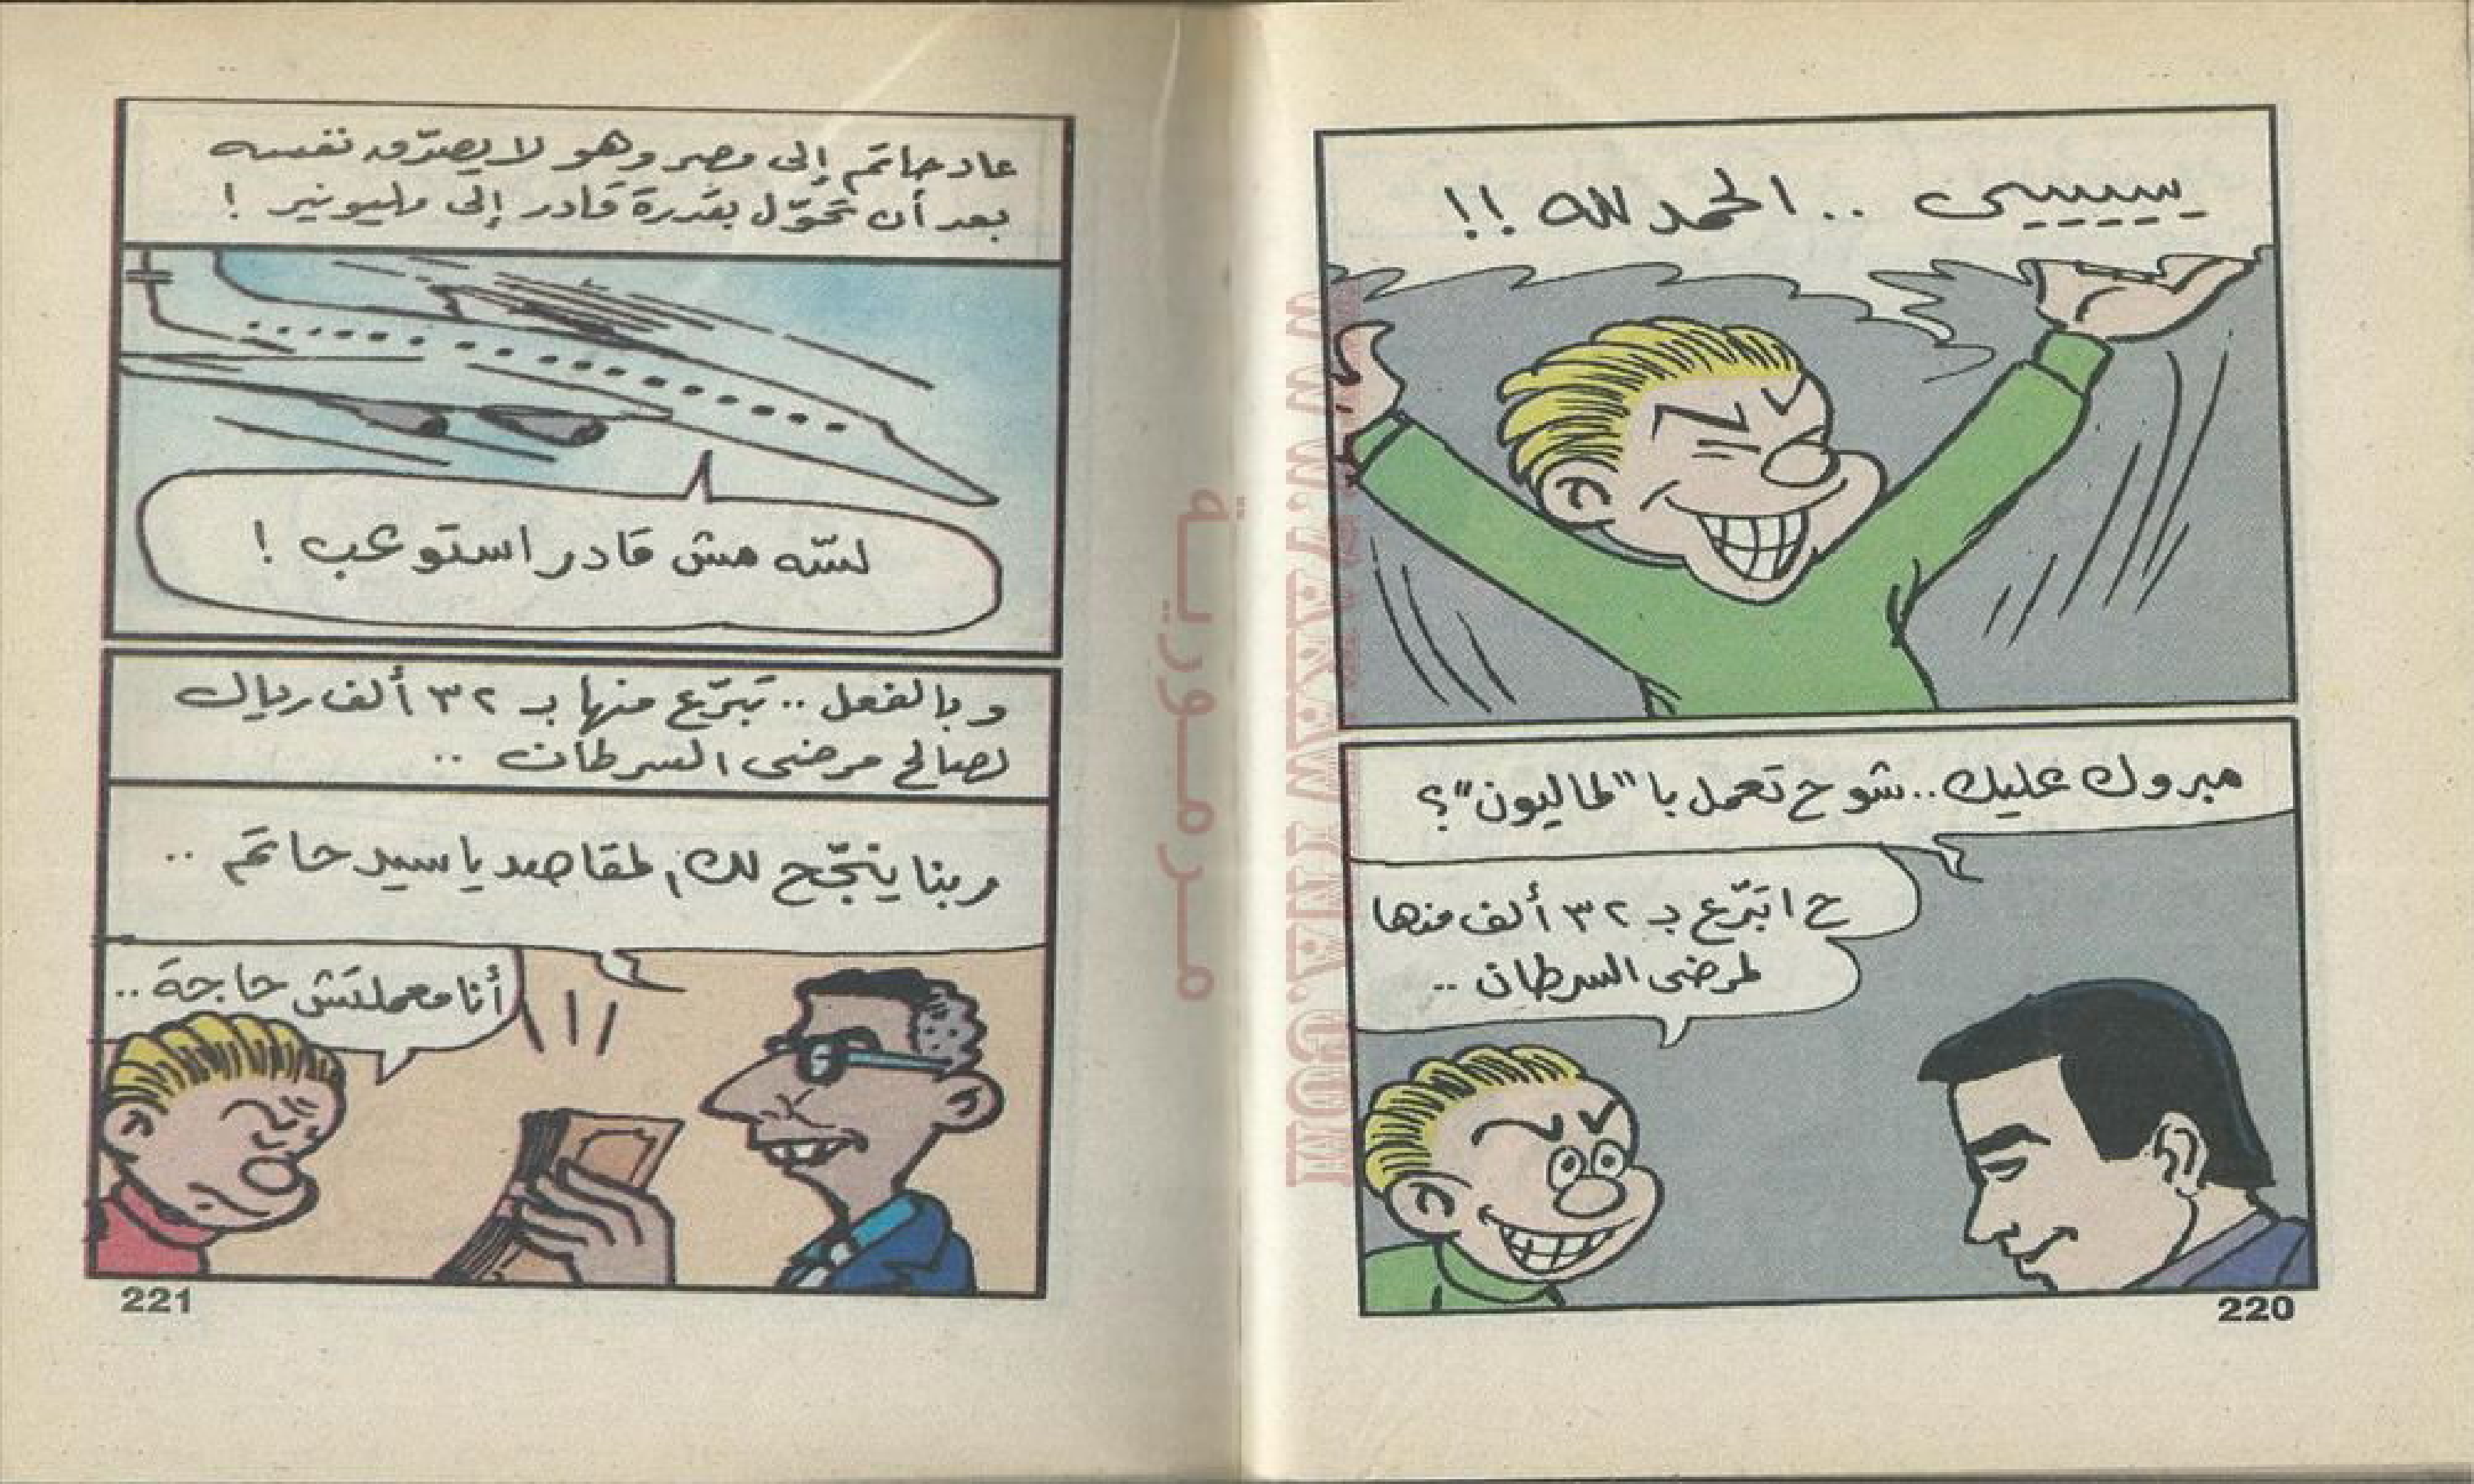 يسيسيى .. الحمد لله !!
مبروك عليك .. شو ح تعمل با "لماليون" ؟
ح اتبرّع بـ ٣٢ ألف منها
لمرضى السرطان ..
220
عاد حاتم إلى مصر وهو لا يصدّق نفسه
بعد أن تحوّل بقدرة قادر إلى مليونير !
لسّه مش قادر استوعب !
وبالفعل .. تبرّع منها بـ ٣٢ ألف ريال
لصالح مرضى السرطان ..
ربنا ينجّح لك المقاصد يا سيد حاتم ..
أنا معملتش حاجة ..
221
مرمورية